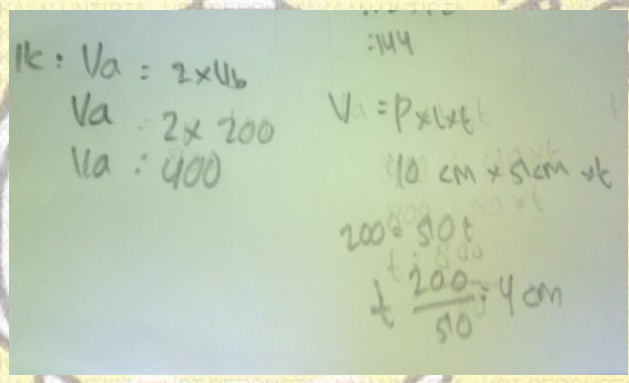 1k : Va = 2 x Vb
Va = 2 x 200
Va : 400
: 144
V = P x l x t
10 cm x 5 cm x t
200 = 50 t
t 200/50 = 4 cm